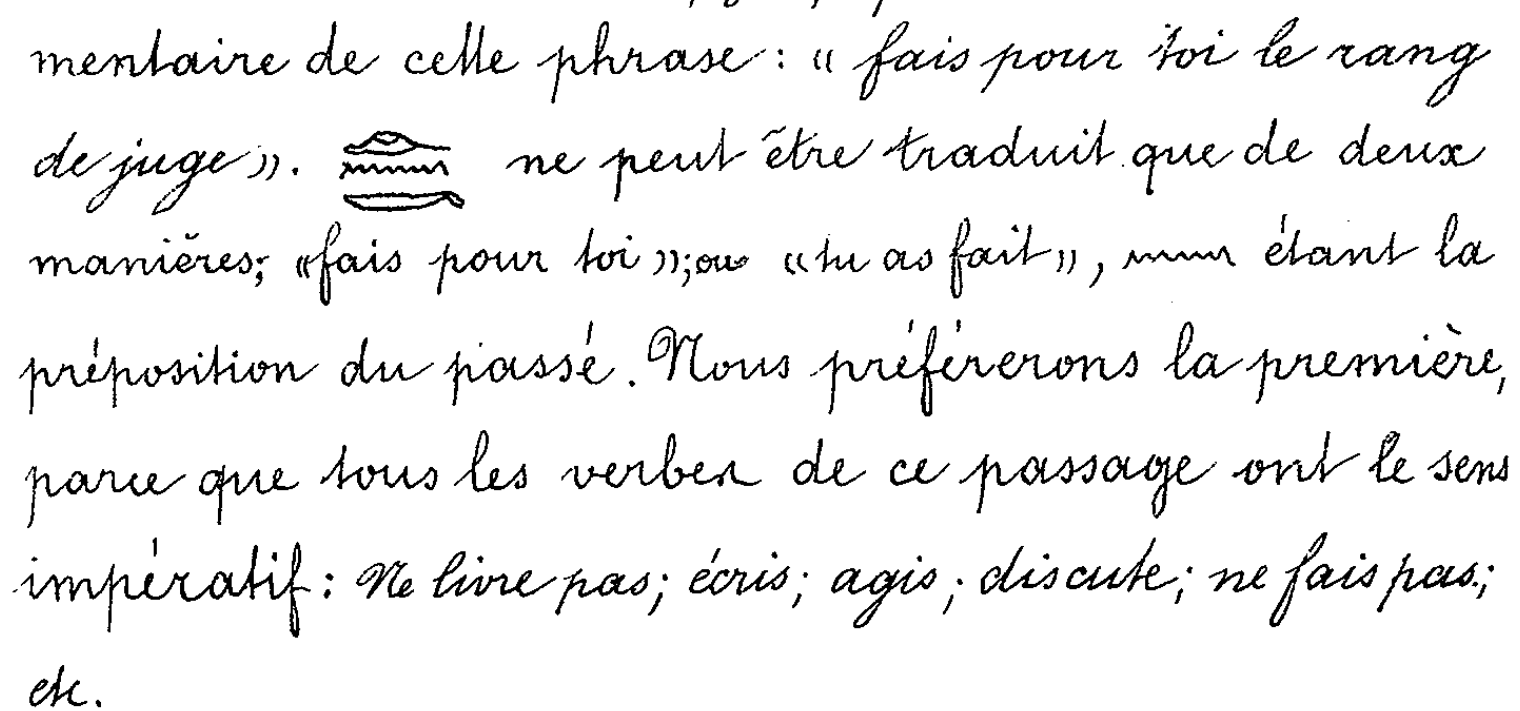 mentaire de cette phrase : « fais pour toi le rang
de juge ». 𓂋𓈖𓎡 ne peut être traduit que de deux
manières; « fais pour toi »; ou « tu as fait », 𓈖 étant la
préposition du passé. Nous préférerons la première,
parce que tous les verbes de ce passage ont le sens
impératif : Ne livre pas; écris; agis; discute; ne fais pas;
etc.